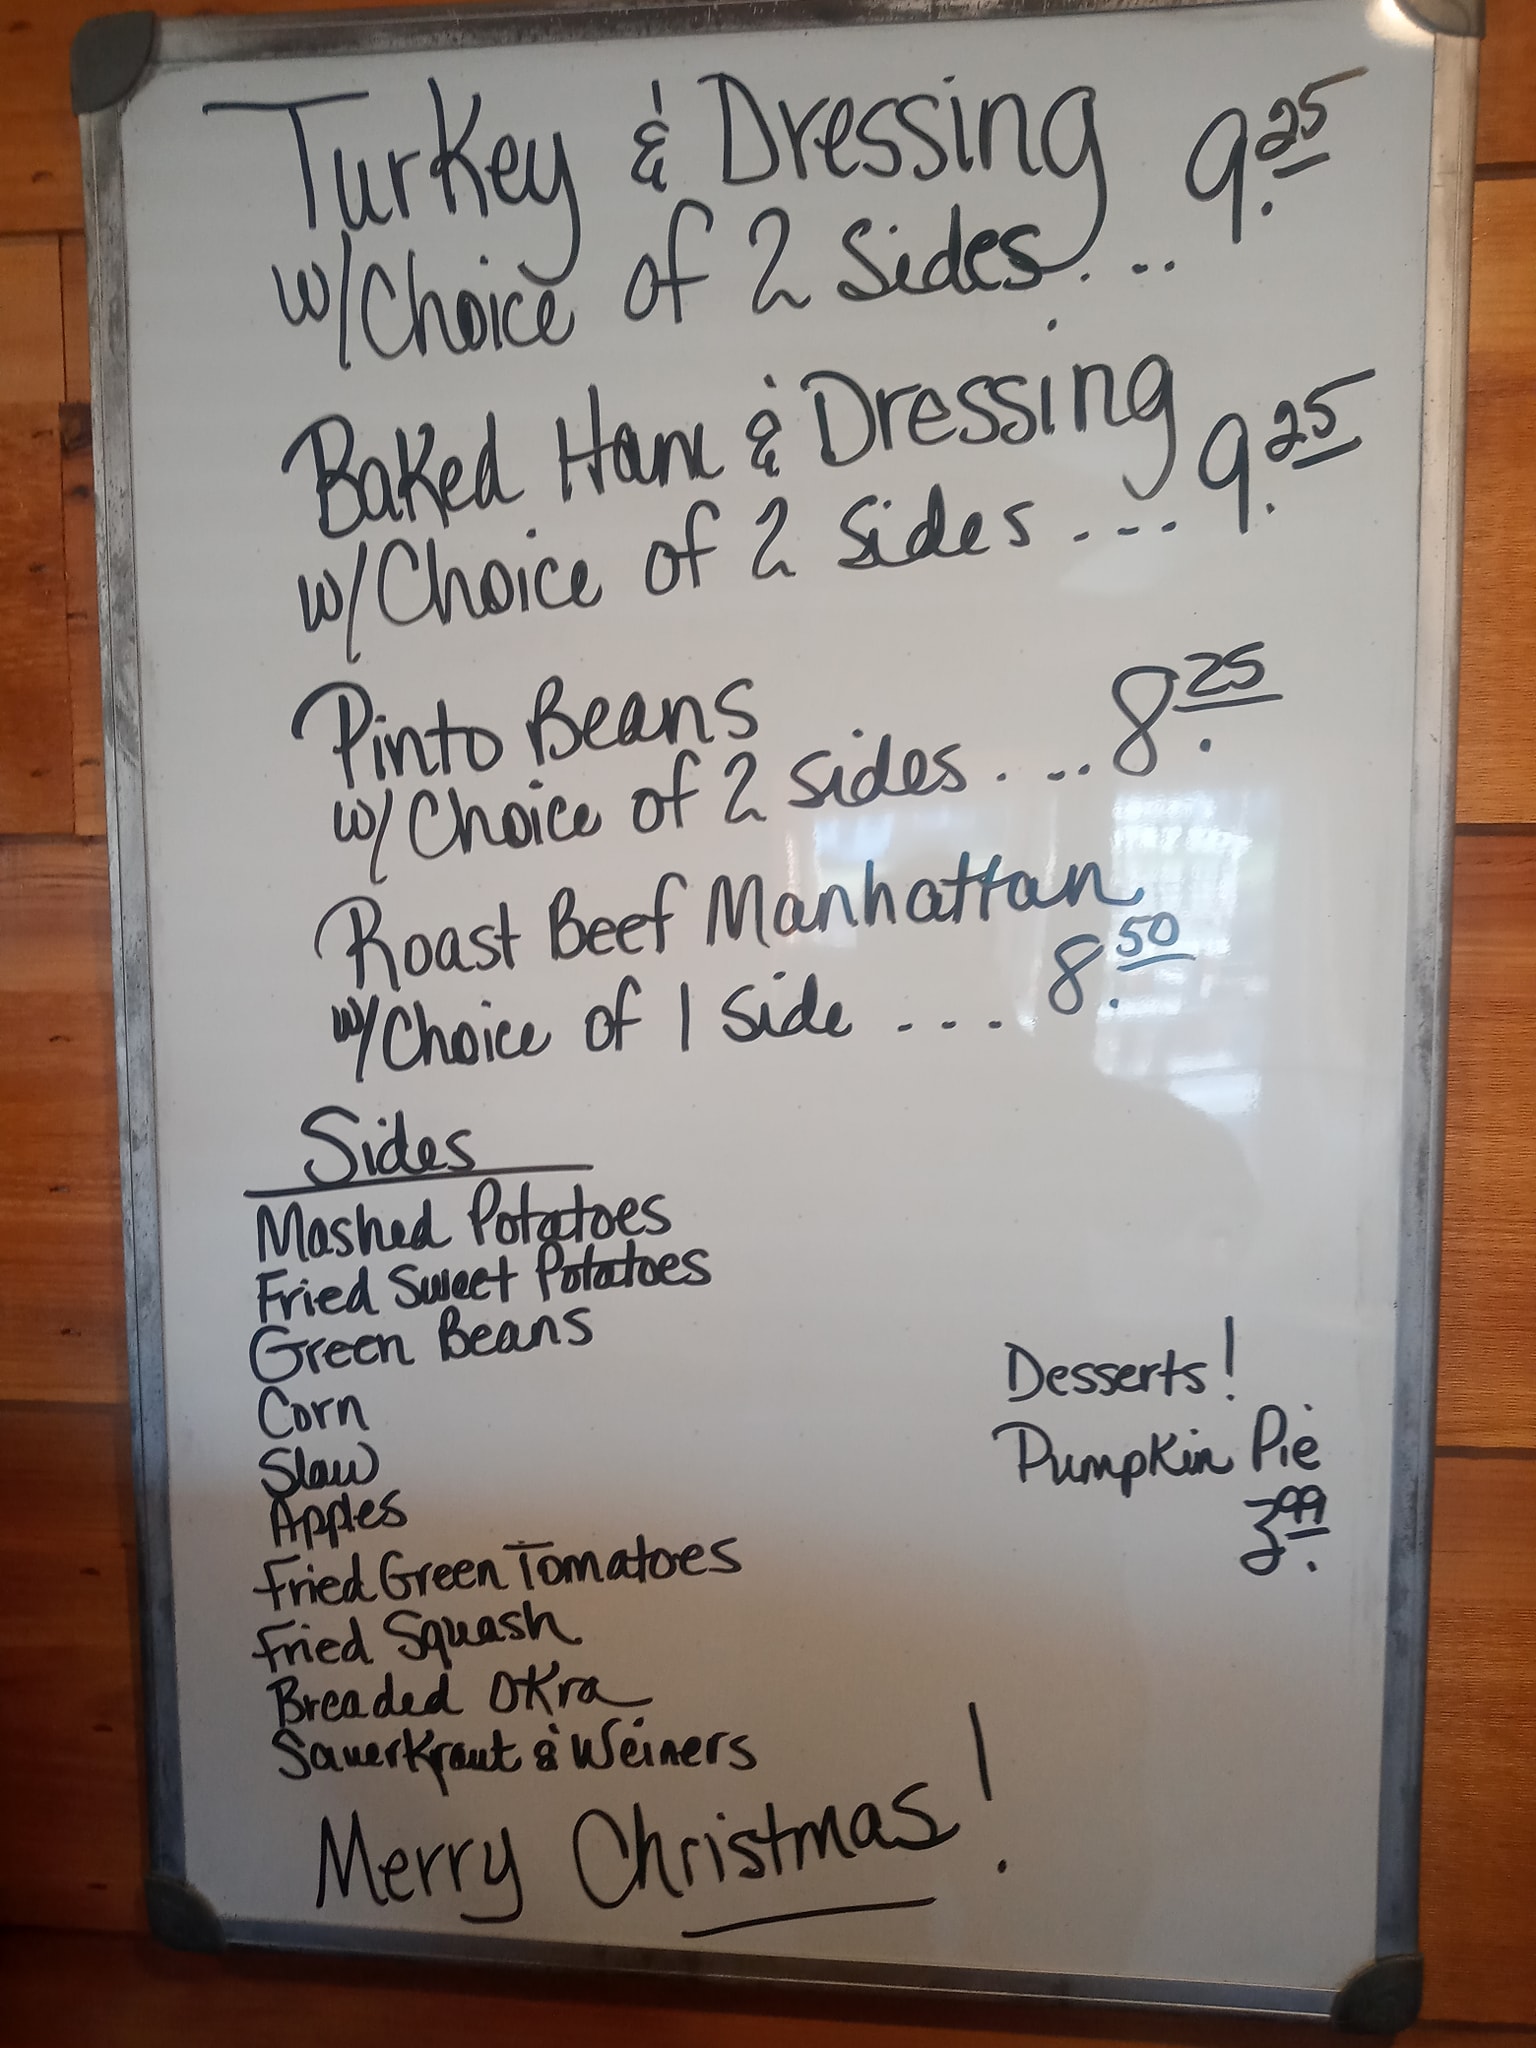 Turkey & Dressing 9.25
w/Choice of 2 Sides. ...
Baked Ham & Dressing 9.25
w/Choice of 2 Sides ...
Pinto Beans 8.25
w/Choice of 2 sides ....
Roast Beef Manhattan
w/Choice of 1 Side ... 8.50
Sides
Mashed Potatoes
Fried Sweet Potatoes
Green Beans
Corn
Slaw
Apples
Fried Green Tomatoes
Fried Squash
Breaded Okra
Sauerkraut & Weiners
Desserts!
Pumpkin Pie
3.99
Merry Christmas!